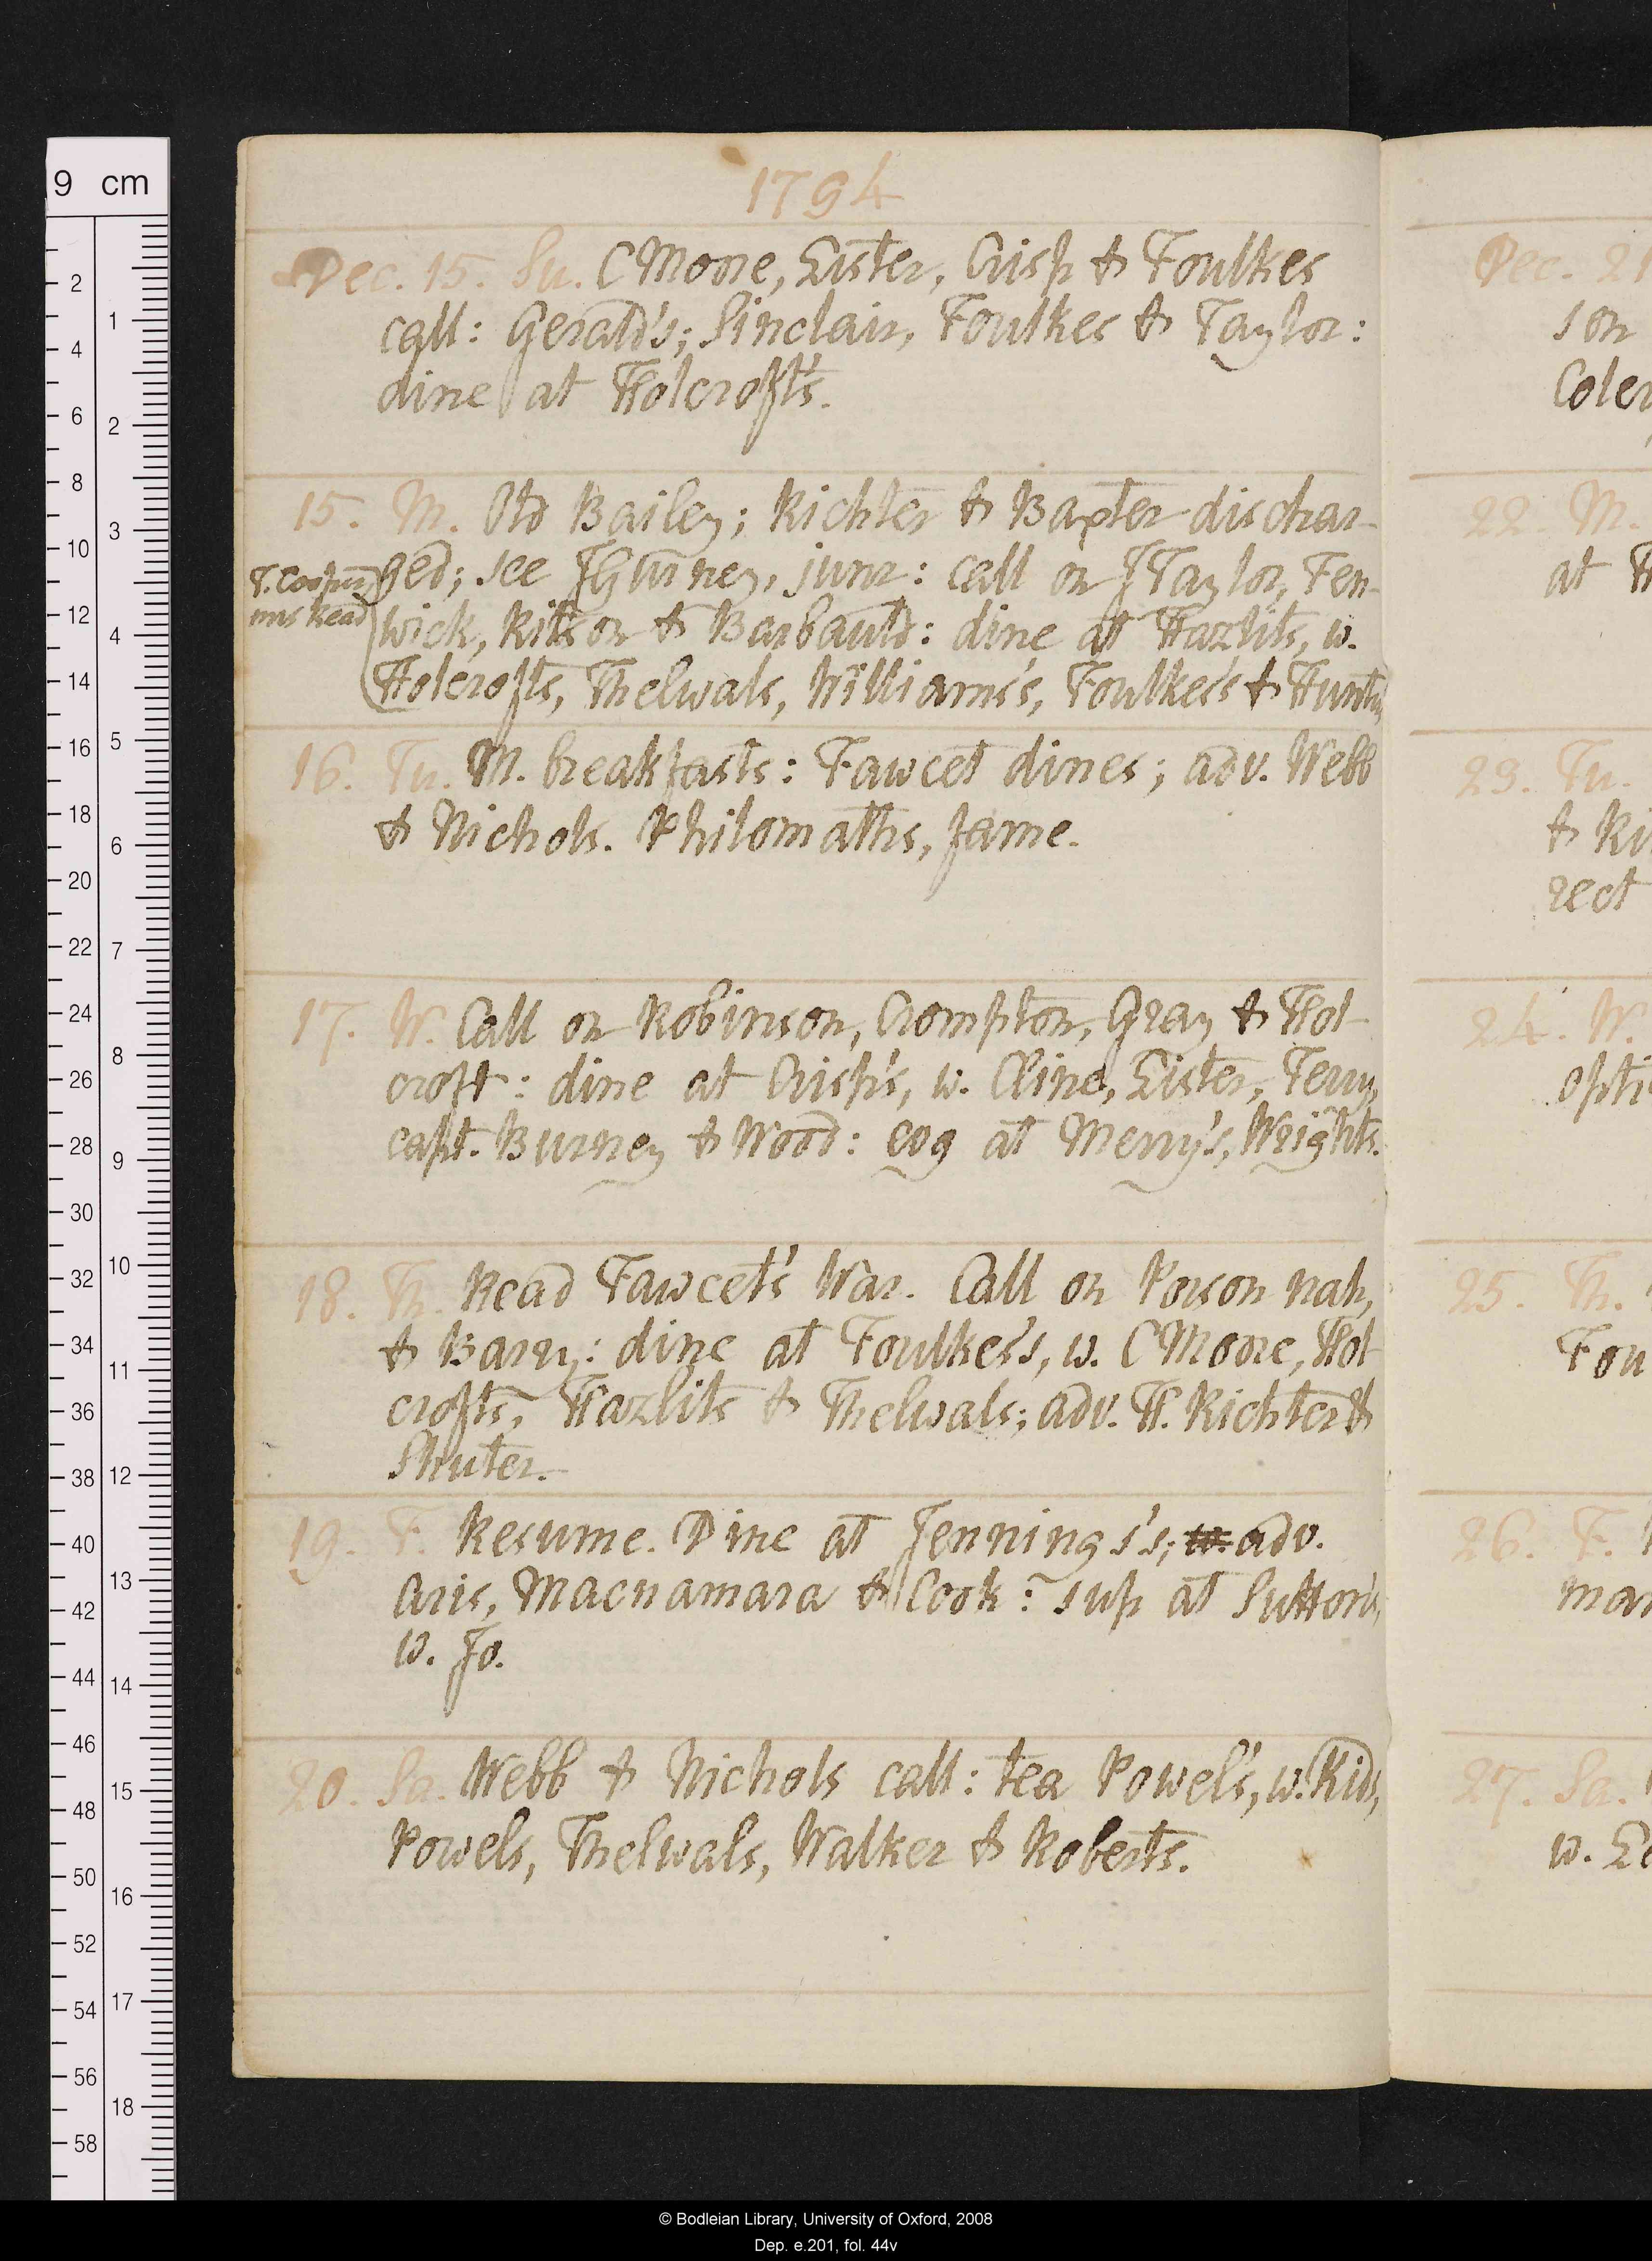 1794
Dec. 15. Su. C Moore, Lister, Crisp & Foulkes
call: Gerald's; Sinclair, Foulkes & Taylor:
dine at Holcroft's.
15. M. Old Bailey; Richter & Baxter dischar-
ged; see J Gurney, junr: call on J Taylor, Fen-
wick, Ritson & Barbauld: dine at Hazlits, w.
Holcrofts, Thelwals, Williams's, Foulkes's &
T. Cooper
mis Read
16. Tu. M. breakfasts: Fawcet dines; adv. Webb
& Nichols. Philomaths, fame.
17. W. Call on Robinson, Crompton, Gray & Hol-
croft: dine at Crisp's, w. Cline, Lister, Terry,
capt. Burney & Wood: eog at Merry's, Wrights.
18. Th. Read Fawcet's War. Call on Porson nah,
& Barry: dine at Foulkes's, w. C Moore, Hol-
crofts, Hazlits & Thelwals; adv. H. Richter &
Shuter.
19. F. Resume. Dine at Jennings's; w. adv.
Aris, Macnamara & Cook: sup at Sutton's,
w. Jo.
20. Sa. Webb & Nichols call: tea Powel's, w. Kids,
Powels, Thelwals, Walker & Roberts.
Dec. 21
son
Coler
22. M.
at H
23. Tu.
& Ri
rect
24. W.
opti
25. Th.
Fou
26. F.
mar
27. Sa.
w. Le
9 cm
2
4
6
8
10
12
14
16
18
20
22
24
26
28
30
32
34
36
38
40
42
44
46
48
50
52
54
56
58
1
2
3
4
5
6
7
8
9
10
11
12
13
14
15
16
17
18
© Bodleian Library, University of Oxford, 2008
Dep. e.201, fol. 44v